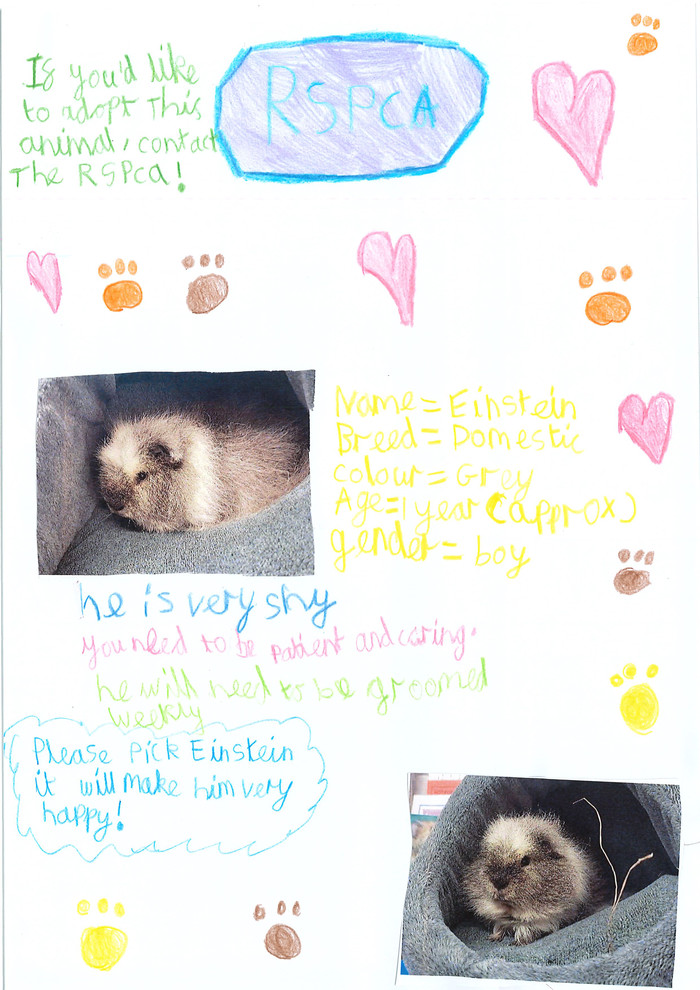 If you'd like
to adopt This
animal, contact
The RSPca!
RSPCA
Name = Einstein
Breed = Domestic
colour = Grey
Age = 1 year (approx)
gender = boy
he is very shy
you need to be patient and caring.
he will need to be groomed
weekly
Please pick Einstein
it will make him very
happy!